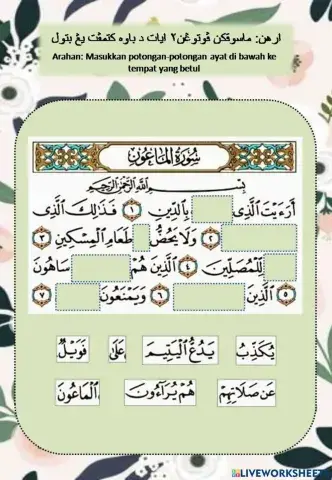 ارهن: ماسوقکن ڤوتوڠن٢ ايات د باوه کتمڤت يڠ بتول
Arahan: Masukkan potongan-potongan ayat di bawah ke
tempat yang betul
سُورَةُ المَاعُونِ
بِسْمِ اللَّهِ الرَّحْمَٰنِ الرَّحِيمِ
أَرَءَيْتَ الَّذِى بِالدِّينِ ١ فَذَٰلِكَ الَّذِى
٢ وَلَا يَحُضُّ طَعَامِ الْمِسْكِينِ ٣
لِّلْمُصَلِّينَ ٤ الَّذِينَ هُمْ سَاهُونَ
٥ الَّذِينَ ٦ وَيَمْنَعُونَ ٧
يُكَذِّبُ يَدُعُّ الْيَتِيمَ عَلَىٰ فَوَيْلٌ
عَن صَلَاتِهِمْ هُمْ يُرَآءُونَ الْمَاعُونَ
LIVEWORKSHEETS